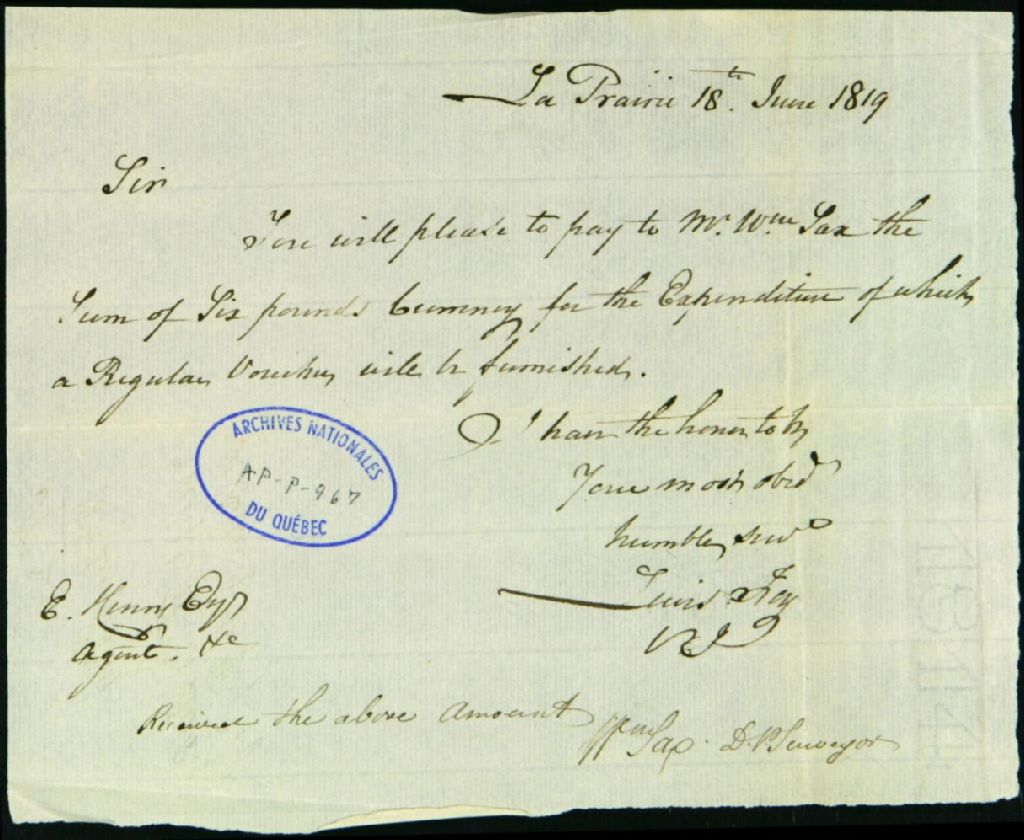 La Prairie 18th. June 1819
Sir
You will please to pay to Mr. Wm Sax the
Sum of Six pounds Currency for the Expenditure of which
a Regular Voucher will be furnished.
I have the honor to be
Your most obed
humble serv
Lewis Foy
ARCHIVES NATIONALES
AP-P-967
DU QUÉBEC
E. Henry Esqr
Agent. &c
Received the above Amount
Wm Sax. D. P. Surveyor